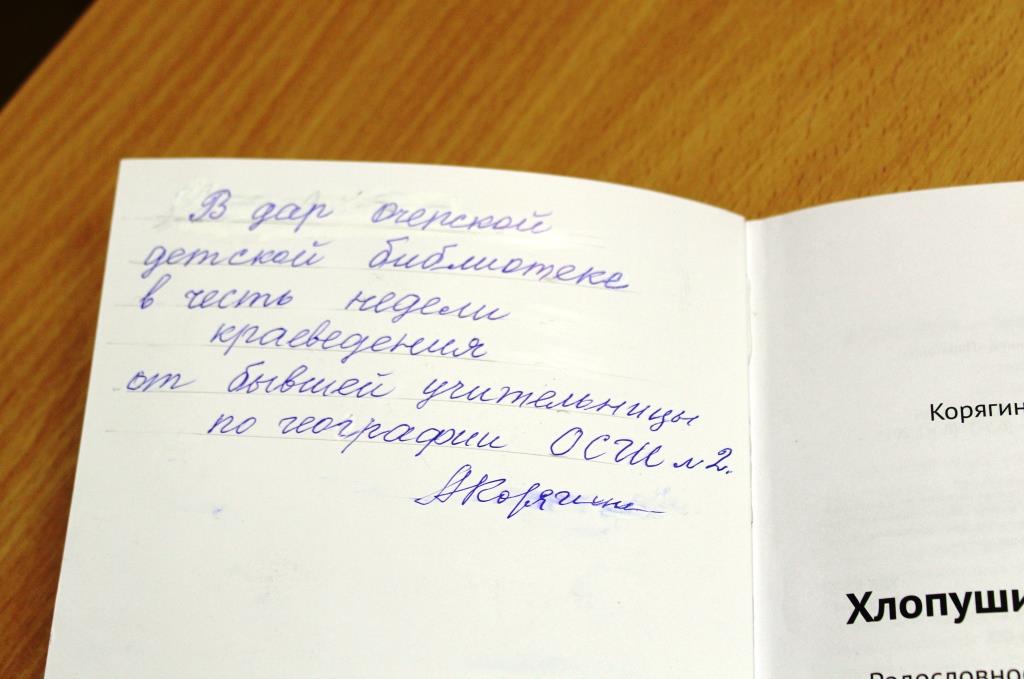 В дар очерской
детской библиотеке
в честь недели
краеведения
от бывшей учительницы
по географии ОСШ №2.
АКорягина
Корягин
Хлопуши
Родословно